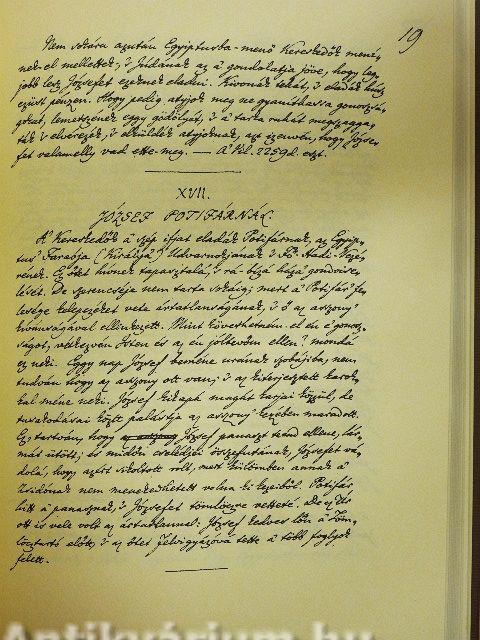 19
Nem sokára azután Egyiptusba-menő Kereskedők mené-
nek-el mellettek, 's Júdának az a' gondolatja jöve, hogy leg-
jobb lesz Józsefet ezeknek eladni. Kivonák tehát, 's eladák húsz
ezüst pénzen. Hogy pedig atyjok meg ne gyaníthassa gonoszsá-
gokat, lemetszenek eggy gödölyét, 's a' tarka ruhát megszagga-
ták 's elvérezék, 's elküldék atyjoknak, azt izenvén, hogy Józse-
fet valamelly vad ette-meg. — A' Vil. 2259d. eszt.
XVII.
JÓZSEF POTIFÁRNÁL.
A' Kereskedők a' szép ifjat eladák Potifárnak, az Egyip-
tus' Faraója (Királyja) Udvarnokjának 's Fő Hadi-Vezé-
rének. Ez őtet hívnek tapasztalá, 's rá-bízá háza' gondvise-
lését. De szerencséje nem tarta sokáig; mert a' Potifár' fe-
lesége kelepczéket vete ártatlanságának, 's ő az asszony'
kívánságával ellenkezett. Mint követhetném-el én e' gonosz-
ságot, vétkezvén Isten és az én jóltevőm ellen? mondá
ez neki. Eggy nap József beméne urának szobájiba, nem
tudván hogy az asszony ott van; 's az kiterjesztett karok-
kal méne neki. József kikapá magát karjai közzűl, de
tusakodásai közt palástja az asszony' kezében maradott.
Ez tartván, hogy József panaszt teend ellene, lár-
mát ütött; és midőn cselédjei összefutának, Józsefet vá-
dolá, hogy azért sikoltott volt, mert különben annak a'
Zsidónak nem menekedhetett volna ki kezeiből. Potifár
hitt a' panasznak, 's Józsefet tömlöczre vetteté. De az Úr
ott is vele volt az ártatlannal: József kedves lőn a' Töm-
löcztartó előtt, 's az őtet Felvigyázóvá tette a' több foglyok
felett.
Antikvárium.hu